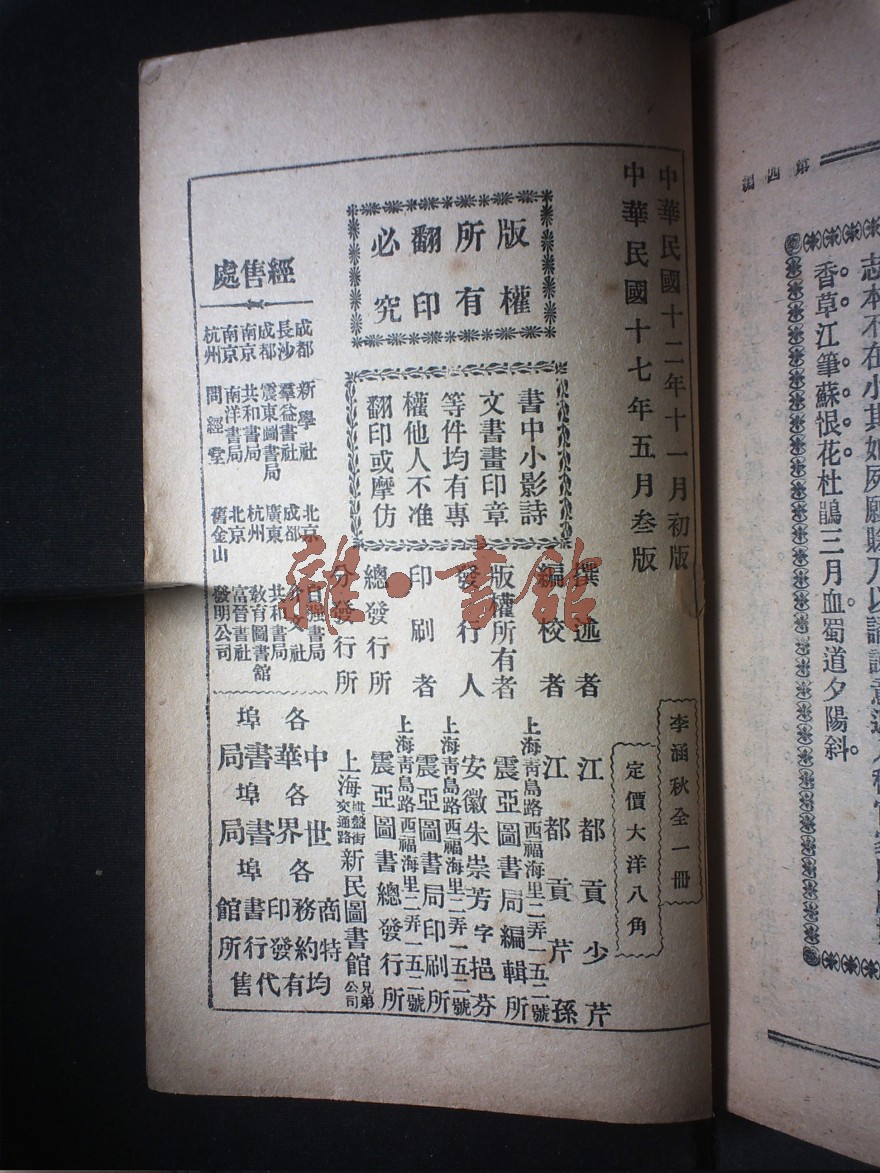 第四編
志本不在小其如死願賒乃以謠諑意
香草江筆蘇恨花杜鵑三月血蜀道夕陽斜。
中華民國十二年十一月初版
中華民國十七年五月叁版
李涵秋全一冊
定價大洋八角
版權
所有
翻印
必究
書中小影詩
文書畫印章
等件均有專
權他人不准
翻印或摩仿
撰述者 江都貢少芹
編校者 江都貢芹孫
版權所有者 上海青島路西福海里二弄一五二號 震亞圖書局編輯所
發行人 安徽朱崇芳字挹芬
印刷者 上海青島路西福海里二弄一五二號 震亞圖書局印刷所
總發行所 上海青島路西福海里二弄一五二號 震亞圖書總發行所
分發行所 上海棋盤街交通路新民圖書館兄弟公司
經售處
成都 新學社
長沙 羣益書社
成都 震東圖書局
南京 共和書局
南京 南洋書局
杭州 問經堂
北京 自強書局
成都 書社
廣東 共和書局
杭州 教育圖書館
北京 富晉書社
舊金山 發明公司
各埠中華書局
各埠世界書局
各埠商務印書館
均有特約發行所代售
雜·書館